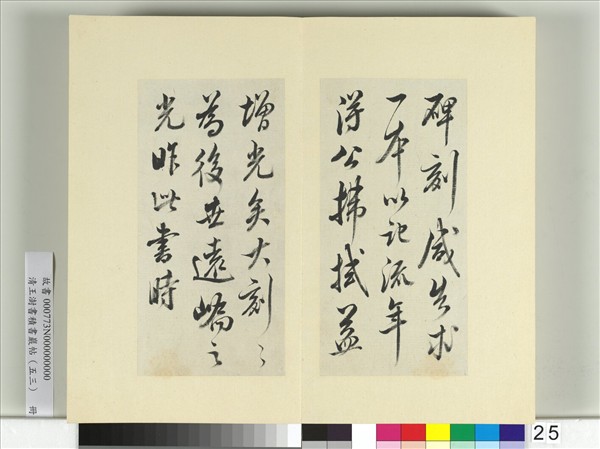 碑刻咸失求
一本以記流年
得公拂拭益
增光矣大刻〻
為後世遠
之
光昨此書時
故書 000773N000000000
清王澍書積書巖帖(五三) 冊
25